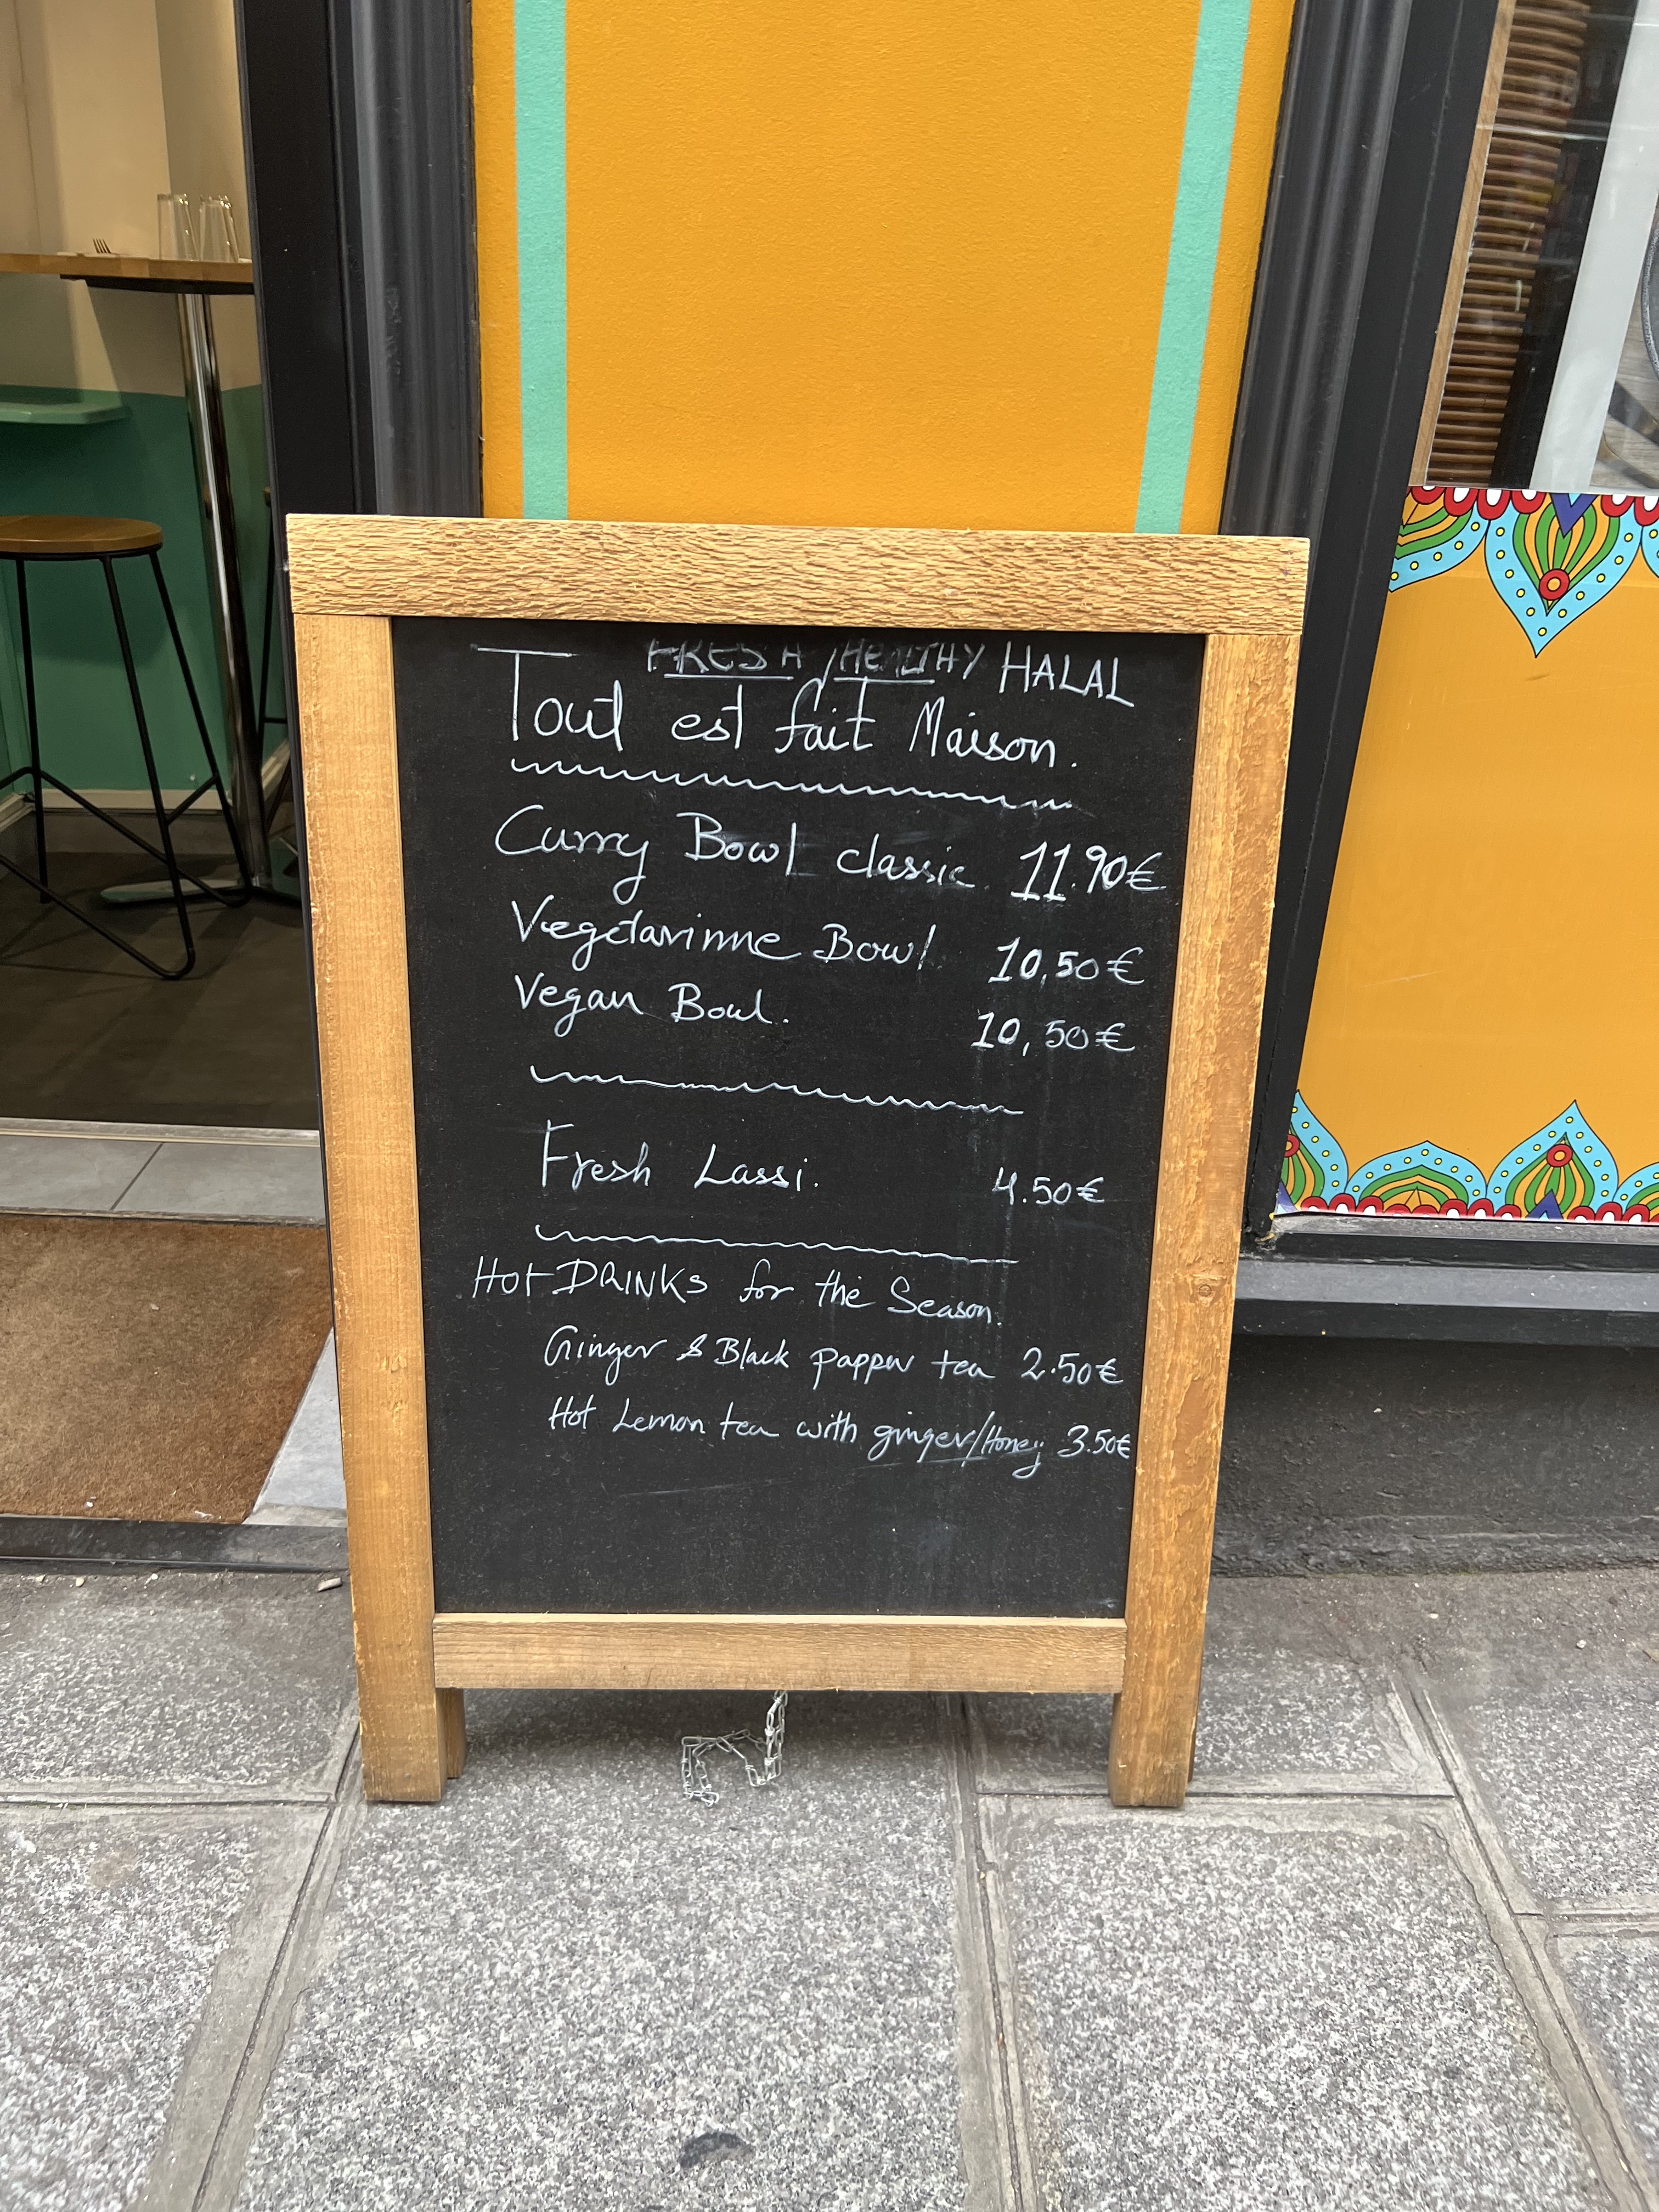 FRESH / HEALTHY HALAL
Tout est fait Maison.
Curry Bowl classic 11.90€
Vegetarinne Bowl 10,50€
Vegan Bowl. 10,50€
Fresh Lassi. 4.50€
Hot DRINKS for the Season.
Ginger & Black papper tea 2.50€
Hot Lemon tea with ginger/Honey 3.50€